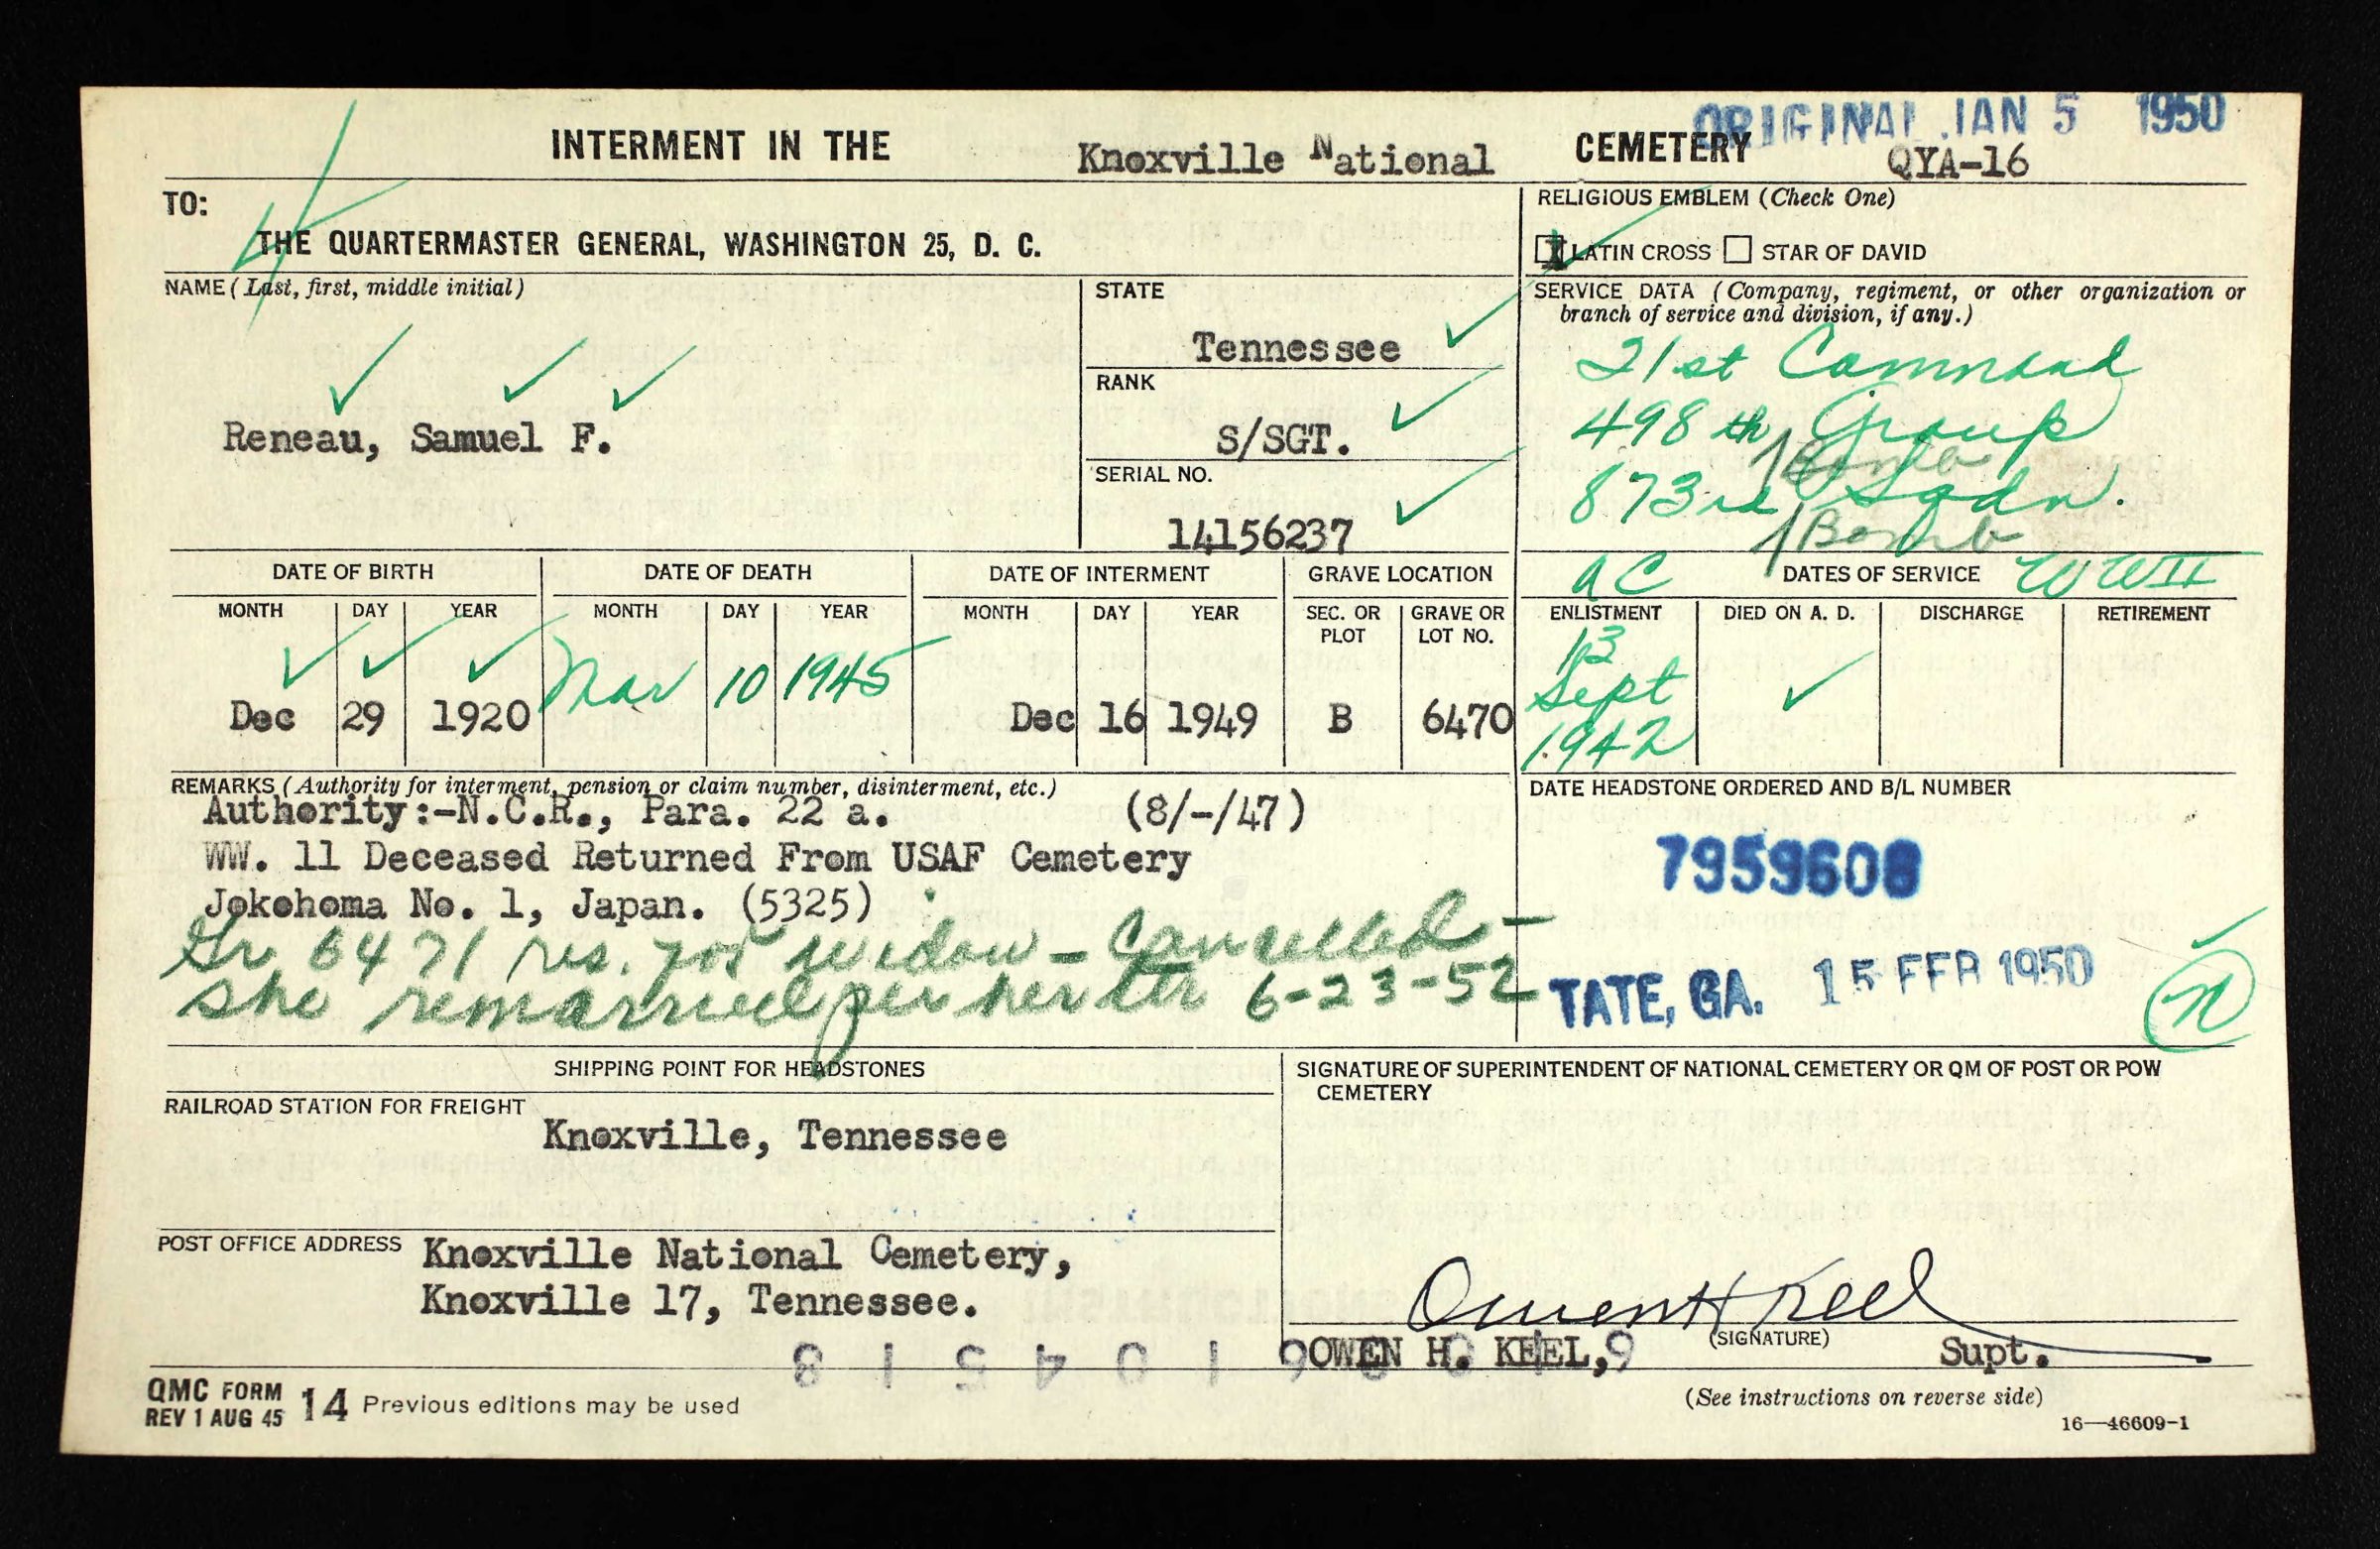 ORIGINAL JAN 5 1950
INTERMENT IN THE Knoxville National CEMETERY QYA-16
TO:
THE QUARTERMASTER GENERAL, WASHINGTON 25, D. C.
RELIGIOUS EMBLEM (Check One)
X LATIN CROSS STAR OF DAVID
NAME (Last, first, middle initial)
Reneau, Samuel F.
STATE
Tennessee
RANK
S/SGT.
SERIAL NO.
14156237
SERVICE DATA (Company, regiment, or other organization or
branch of service and division, if any.)
21st Command
498th Group
Bomb
873rd Sqdn.
Bomb
AC DATES OF SERVICE WWII
DATE OF BIRTH DATE OF DEATH DATE OF INTERMENT GRAVE LOCATION
MONTH DAY YEAR MONTH DAY YEAR MONTH DAY YEAR SEC. OR PLOT GRAVE OR LOT NO.
Dec 29 1920 Mar 10 1945 Dec 16 1949 B 6470
ENLISTMENT DIED ON A. D. DISCHARGE RETIREMENT
13
Sept
1942
REMARKS (Authority for interment, pension or claim number, disinterment, etc.)
Authority:-N.C.R., Para. 22 a. (8/-/47)
WW. 11 Deceased Returned From USAF Cemetery
Jokohoma No. 1, Japan. (5325)
Gr 6471 res. for widow - Cancelled -
she remarried per her ltr 6-23-52
DATE HEADSTONE ORDERED AND B/L NUMBER
7959608
TATE, GA. 15 FEB 1950
SHIPPING POINT FOR HEADSTONES
RAILROAD STATION FOR FREIGHT
Knoxville, Tennessee
POST OFFICE ADDRESS Knoxville National Cemetery,
Knoxville 17, Tennessee.
SIGNATURE OF SUPERINTENDENT OF NATIONAL CEMETERY OR QM OF POST OR POW
CEMETERY
Owen H Keel
(SIGNATURE)
OWEN H. KEEL, Supt.
QMC FORM 14 Previous editions may be used
REV 1 AUG 45
(See instructions on reverse side)
16—46609-1